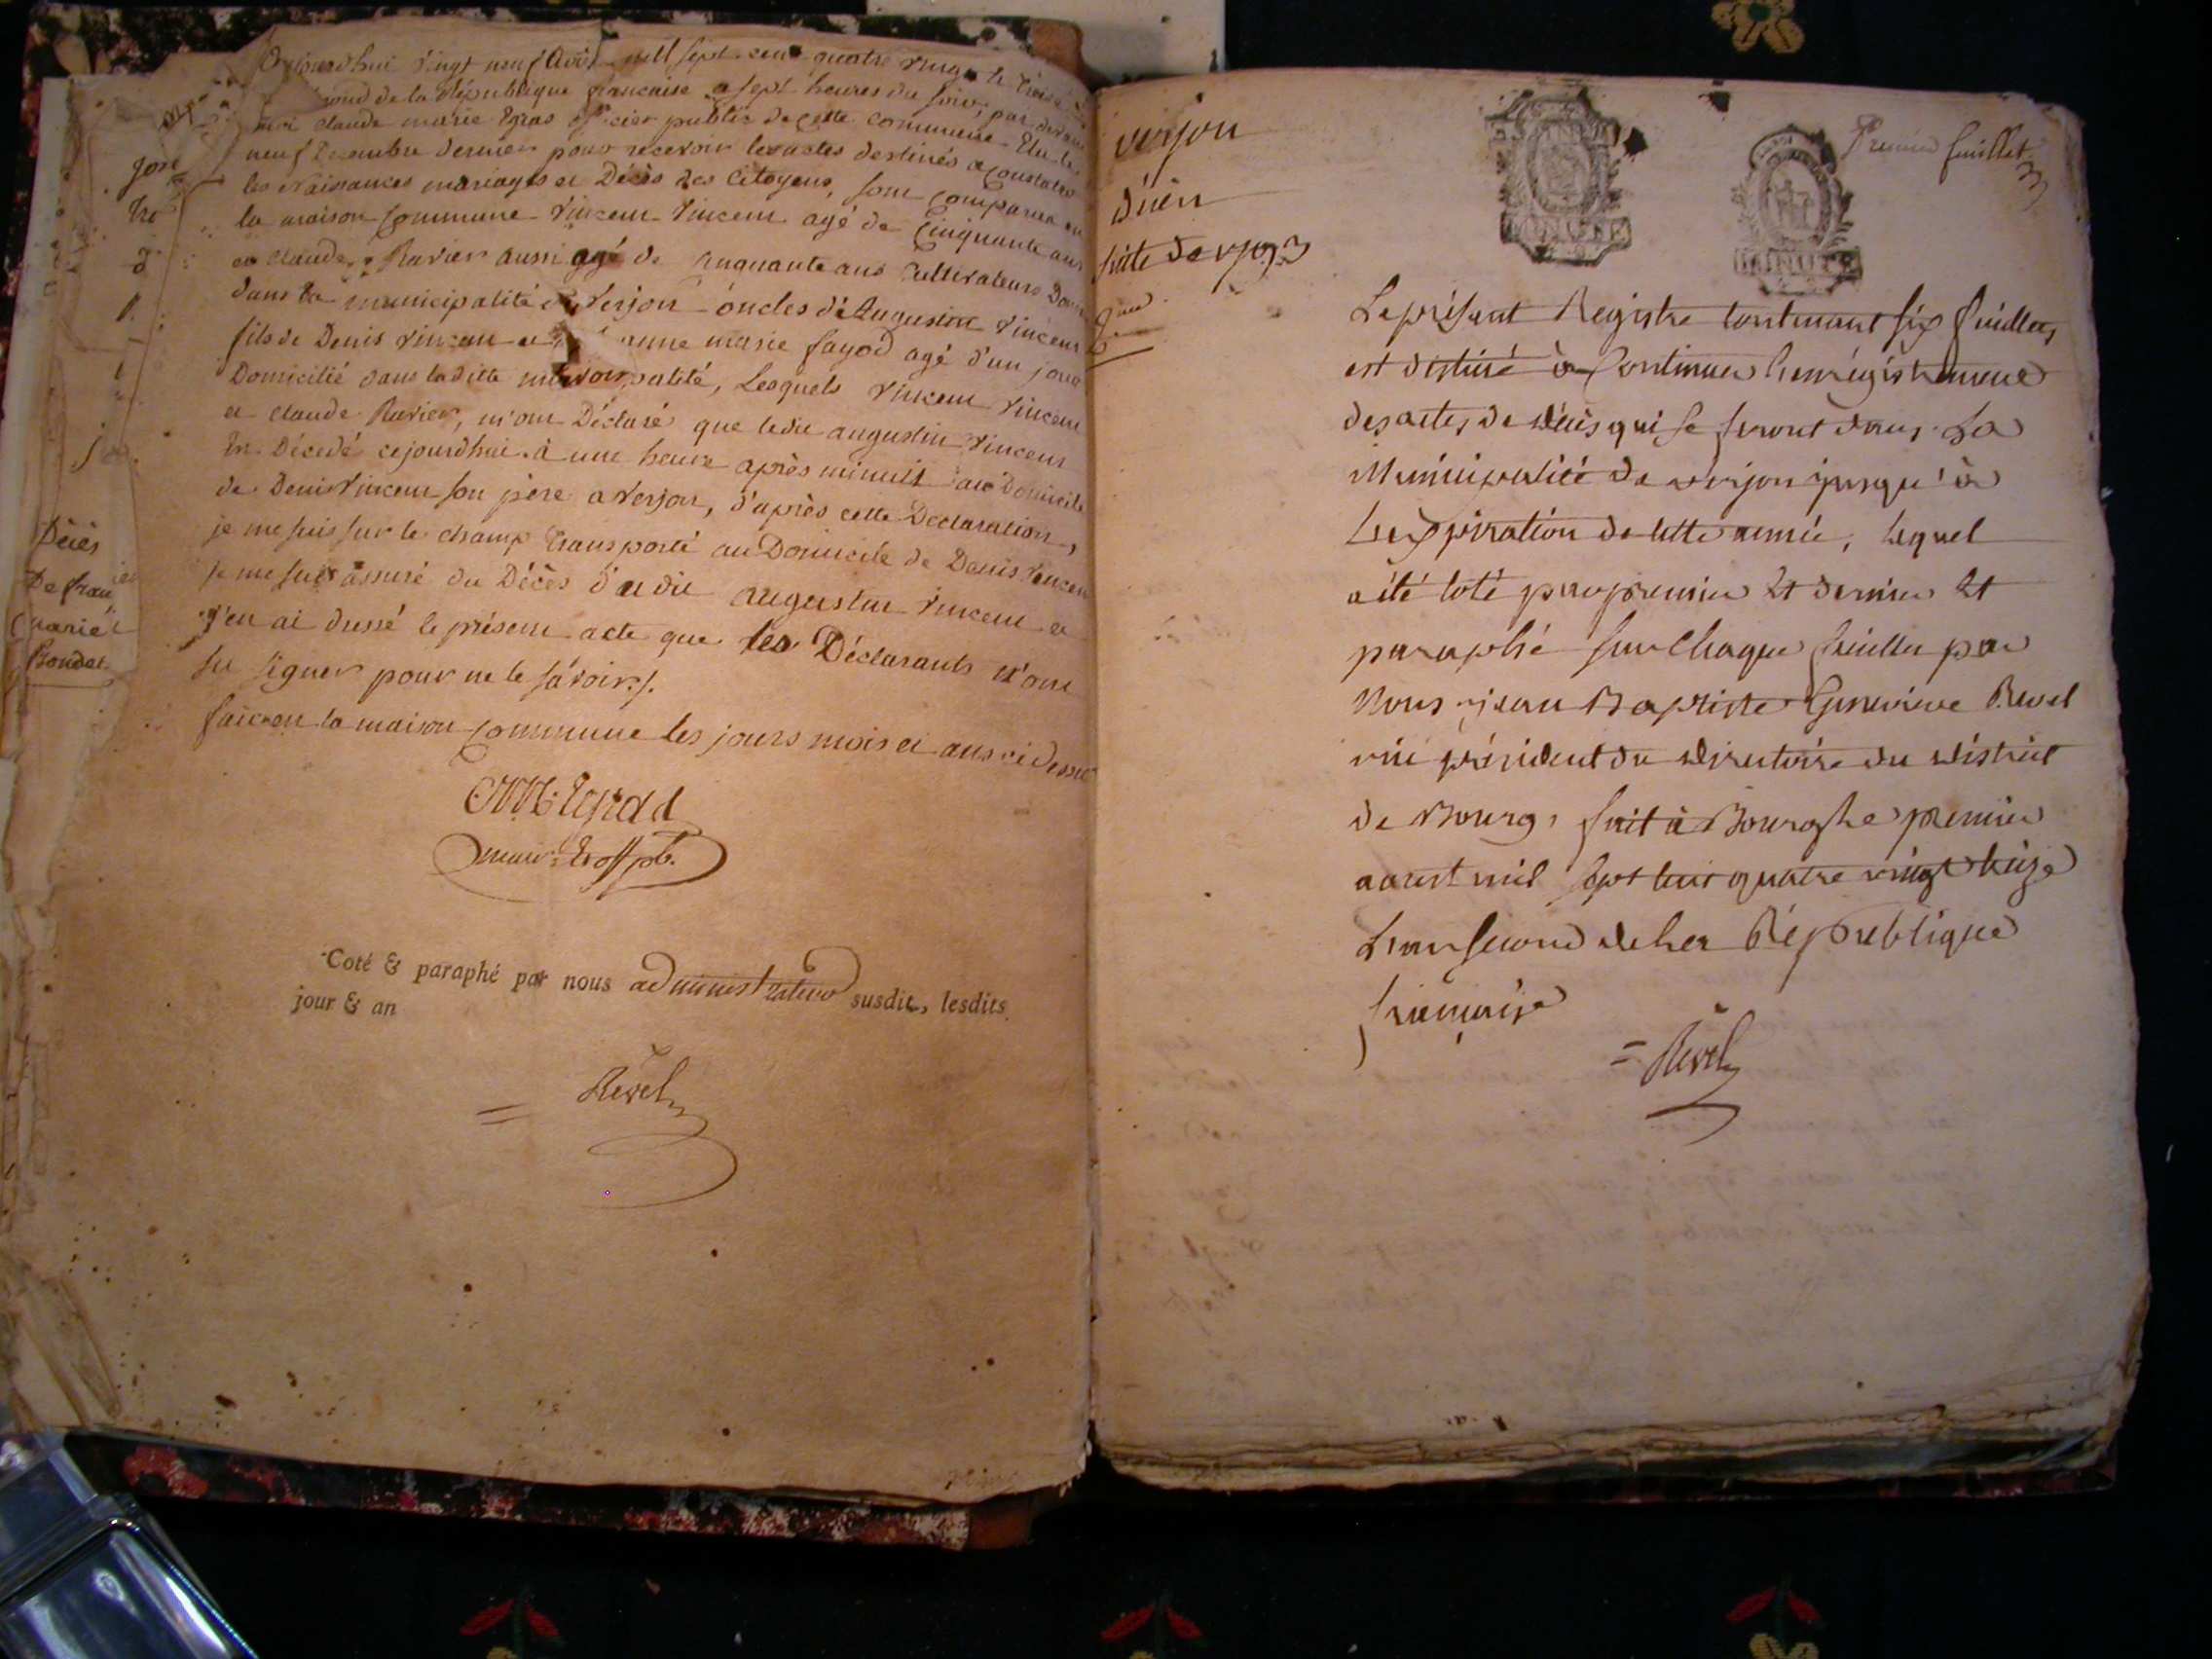 Aujourdhui vingt neuf Août mill sept cent quatre vingt treize
second de la République francaise a sept heures du soir, par devant
moi claude marie Egras officier public de cette commune Elu le
neuf Decembre dernier pour recevoir les actes destinés a constater
les Naissances mariages et Décès des Citoyens, sont comparus en
la maison Commune Vincent Vincent agé de Cinquante ans
et claude Ravier aussi agé de cinquante ans Cultivateurs Dom
dans la municipalité de Verjon oncles d'Augustin Vincent
fils de Denis Vincent et anne marie fayod agé d'un jour
Domicilié dans laditte municipalité, Lesquels Vincent Vincent
et claude Ravier, m'ont Déclaré que ledit augustin Vincent
Est Décedé cejourdhui à une heure après minuit au Domicile
de Denis Vincent son père a Verjon, d'après cette Déclaration,
je me suis sur le champ transporté au Domicile de Denis Vincent
je me suis assuré du Décès dudit augustin Vincent et
j'en ai dressé le présent acte que les Déclarants n'ont
su signer pour ne le sávoir./.
fait en la maison commune les jours mois et ans ci dessus
maire Et off pb.
Coté & paraphé par nous administrateur susdit, lesdits
jour & an
Revel
Décès
De fran
mariè
Bondet
verjon
décès
suite de 1793
Premier feuillet
Le présent Registre contenant six feuillets,
est destiné à Continuer l'enregistrement
des actes de décès qui se feront dans La
Municipalité de verjon jusqu'à
L'expiration de cette année, lequel
a été coté par premier Et dernier Et
paraphé sur Chaque feuillet par
Nous jean Baptiste Geneviève Revel
vice président du directoire du district
de Bourg, fait à Bourg le premier
aoust mil sept cent quatre vingt treize
L'an second de la République
françoise
= Revel